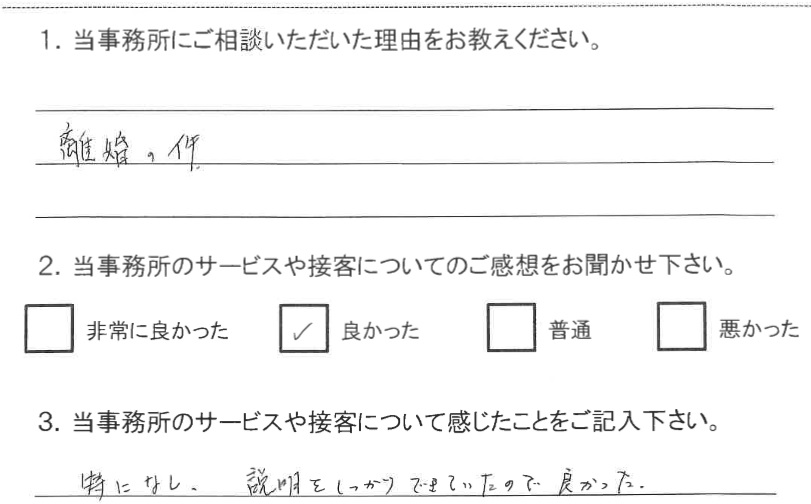 1. 当事務所にご相談いただいた理由をお教えください。
離婚の件
2. 当事務所のサービスや接客についてのご感想をお聞かせ下さい。
非常に良かった ✓ 良かった 普通 悪かった
3. 当事務所のサービスや接客について感じたことをご記入下さい。
特になし、 説明をしっかりできていたので良かった。